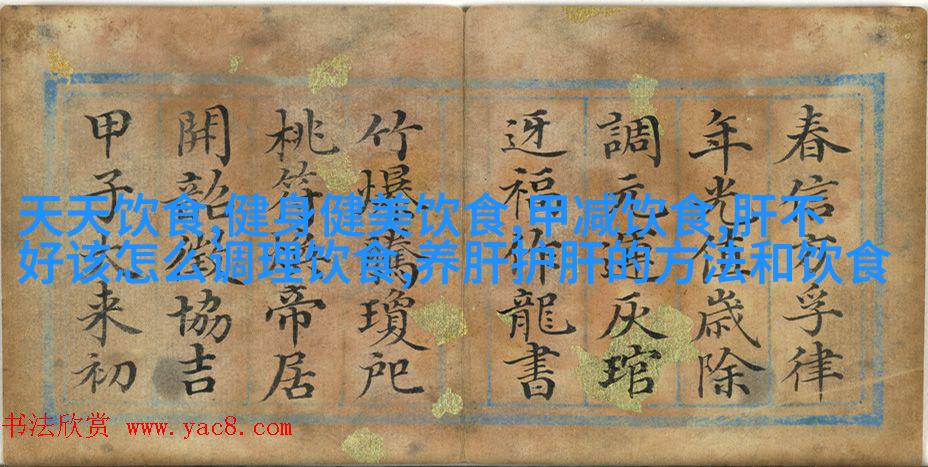 春信方孚律
年光佳歲除
調元通灰琯
迓福仰龍書
竹爆瓊戺
桃符帝居
開韶徵協吉
甲子來初
天天饮食,健身健美饮食,甲减饮食,肝不
好该怎么调理饮食,养肝护肝的方法和饮食
书法欣赏 www.yac8.com